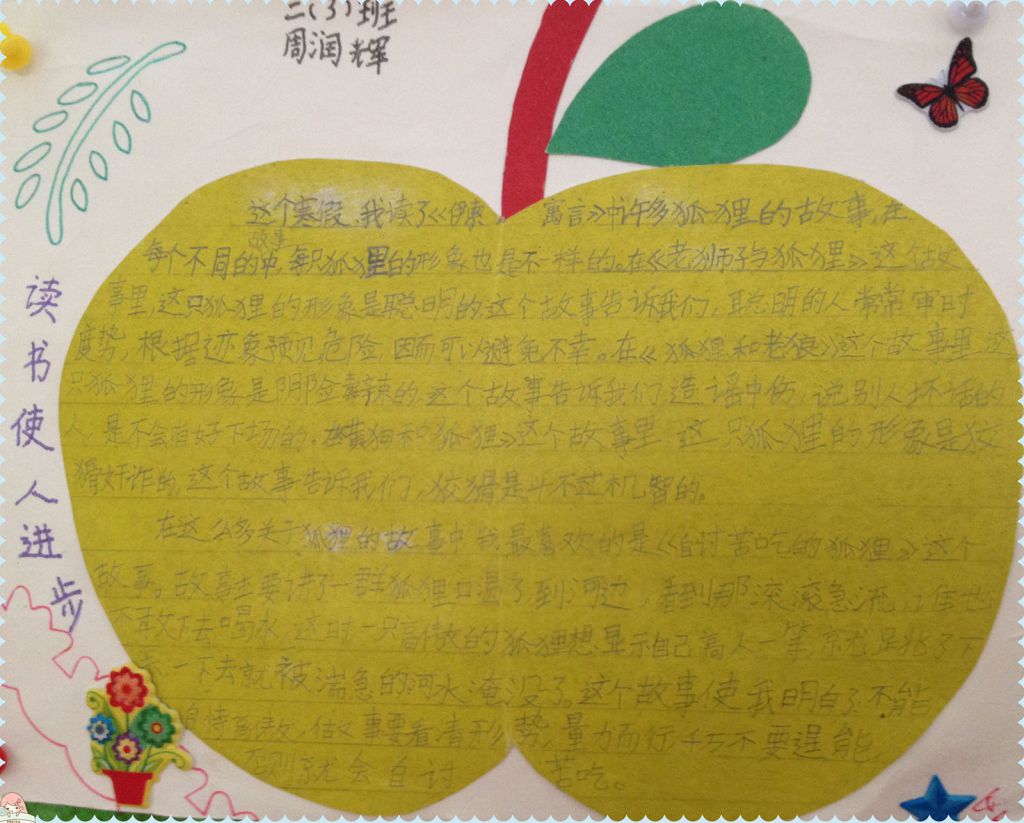 二(3)班
周润辉
读书使人进步
这个寒假,我读了《伊索 寓言》中许多狐狸的故事,在
故事
每个不同的中,每只狐狸的形象也是不一样的。在《老狮子与狐狸》这个故
事里,这只狐狸的形象是聪明的,这个故事告诉我们,聪明的人常常审时
度势,根据迹象预见危险,因而可以避免不幸。在《狐狸和老狼》这个故事里,这
只狐狸的形象是阴险毒辣的,这个故事告诉我们,造谣中伤,说别人坏话的
人,是不会有好下场的。在《黄狗和狐狸》这个故事里,这只狐狸的形象是狡
猾奸诈的,这个故事告诉我们,狡猾是斗不过机智的。
在这么多关于狐狸的故事中,我最喜欢的是《自讨苦吃的狐狸》这个
故事。故事主要讲了一群狐狸口渴了,到河边,看到那滚滚急流,谁也
不敢下去喝水,这时一只高傲的狐狸想显示自己高人一等,就跳了下
一下去就被湍急的河水淹没了。这个故事使我明白了不能
高傲,做事要看清形势,量力而行,千万不要逞能,
否则就会自讨 苦吃。